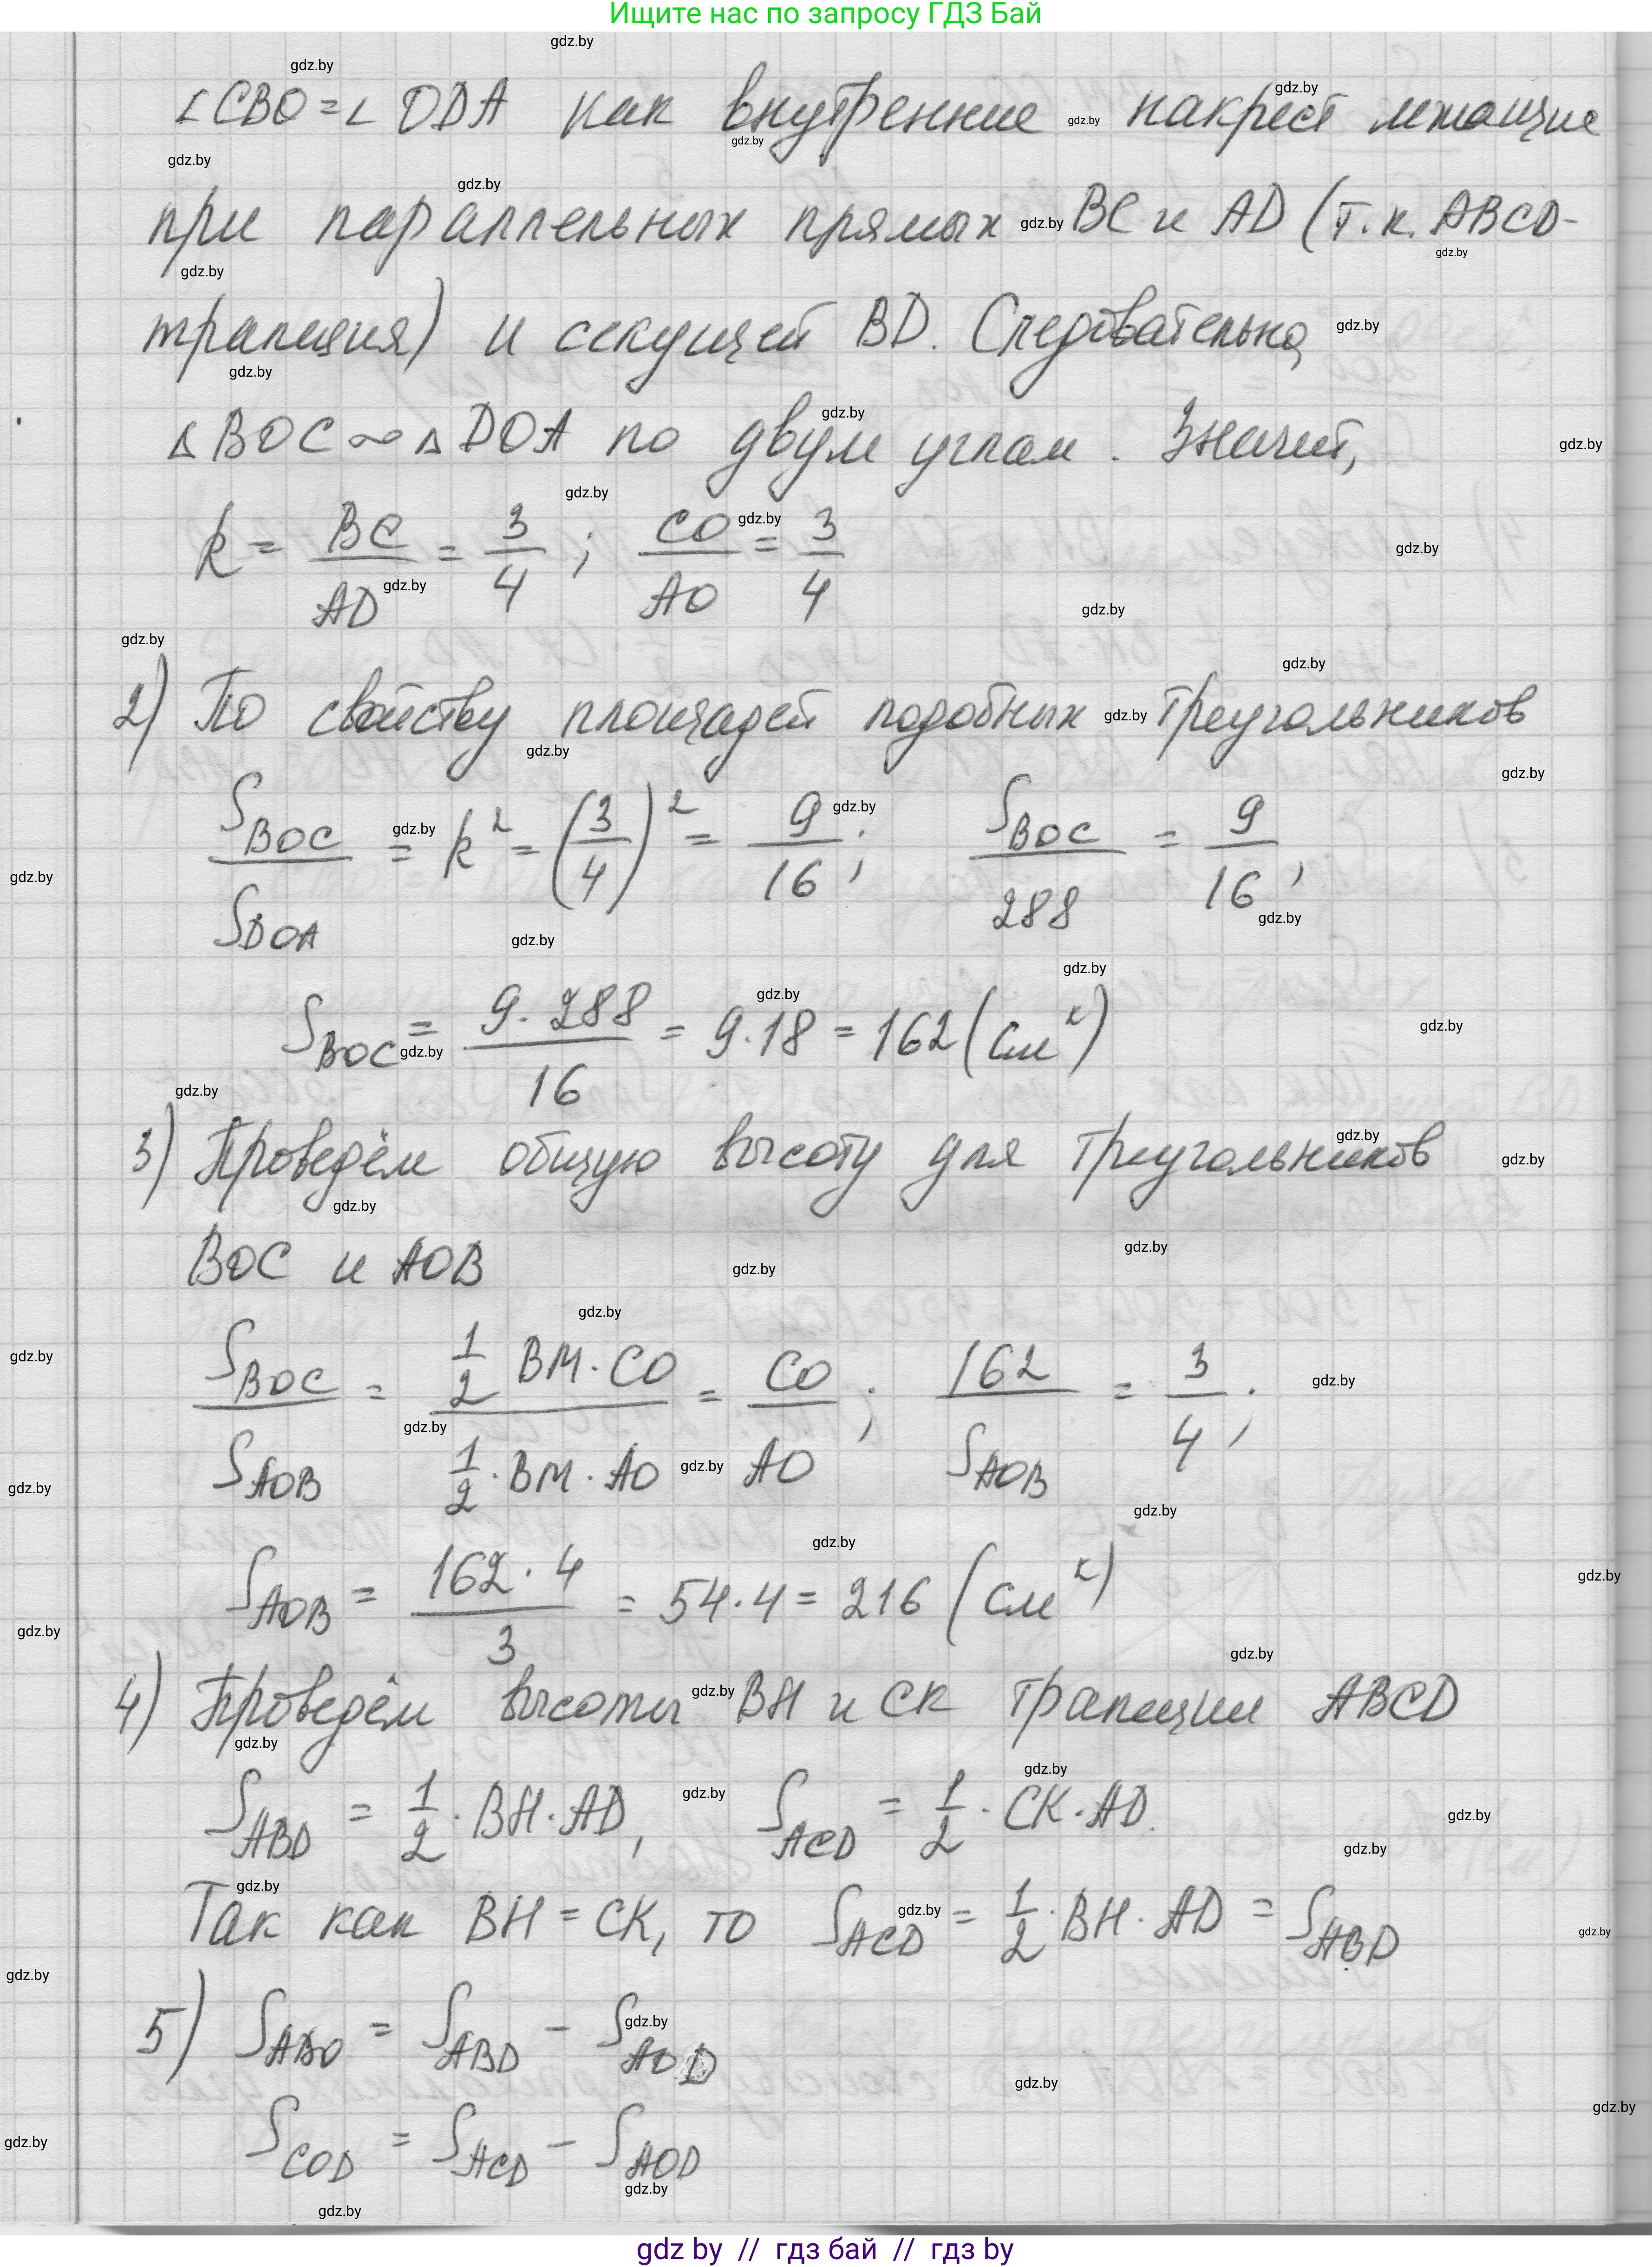 Ищите нас по запросу ГДЗ Бай
∠CBO = ∠ODA как внутренние накрест лежащие
при параллельных прямых BC и AD (т.к. ABCD-
трапеция) и секущей BD. Следовательно,
△BOC ∾ △DOA по двум углам. Значит,
k = BC/AD = 3/4; CO/AO = 3/4
2) По свойству площадей подобных треугольников
S_BOC/S_DOA = k² = (3/4)² = 9/16; S_BOC/288 = 9/16;
S_BOC = 9·288/16 = 9·18 = 162 (см²)
3) Проведём общую высоту для треугольников
BOC и AOB
S_BOC/S_AOB = (1/2 BM·CO)/(1/2·BM·AO) = CO/AO; 162/S_AOB = 3/4;
S_AOB = 162·4/3 = 54·4 = 216 (см²)
4) Проведём высоты BH и CK трапеции ABCD
S_ABD = 1/2·BH·AD, S_ACD = 1/2·CK·AD.
Так как BH = CK, то S_ACD = 1/2·BH·AD = S_ABD
5) S_ABO = S_ABD - S_AOD
S_COD = S_ACD - S_AOD
gdz by // гдз бай // гдз by